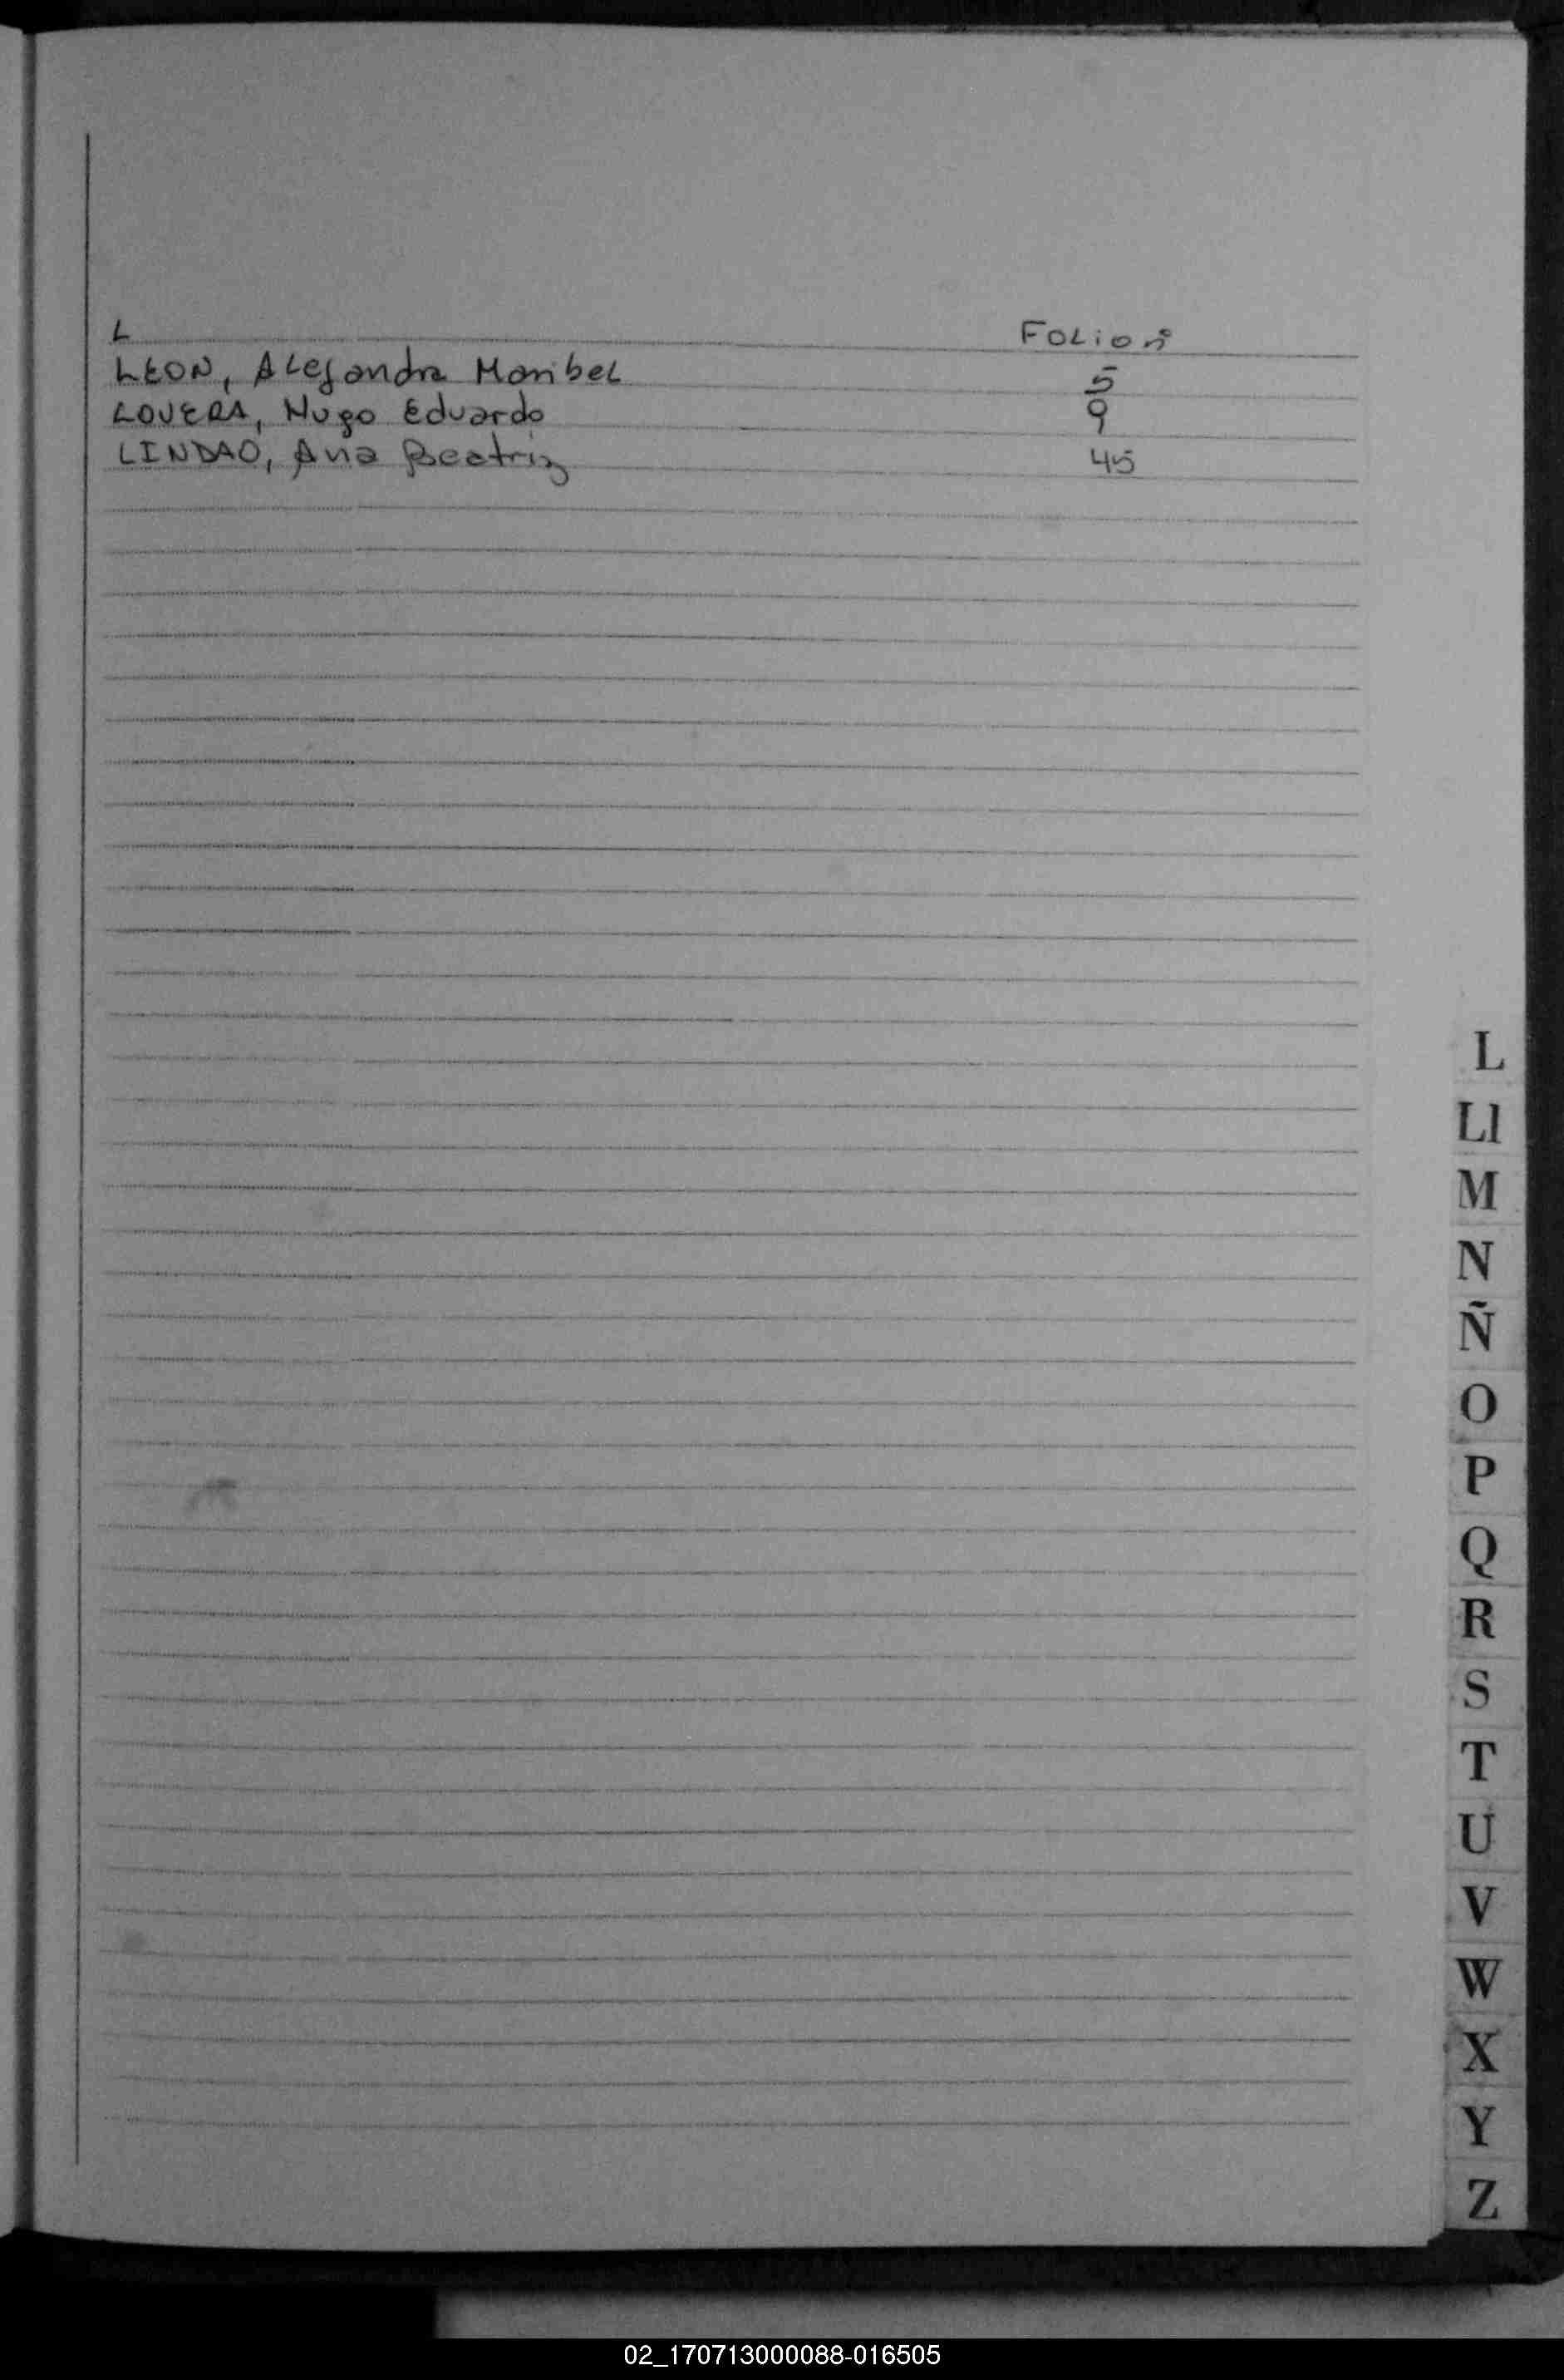 L Folios
LEON, Alejandra Maribel 5
LOVERA, Hugo Eduardo 9
LINDAO, Ana Beatriz 45
L
Ll
M
N
Ñ
O
P
Q
R
S
T
U
V
W
X
Y
Z
02_170713000088-016505